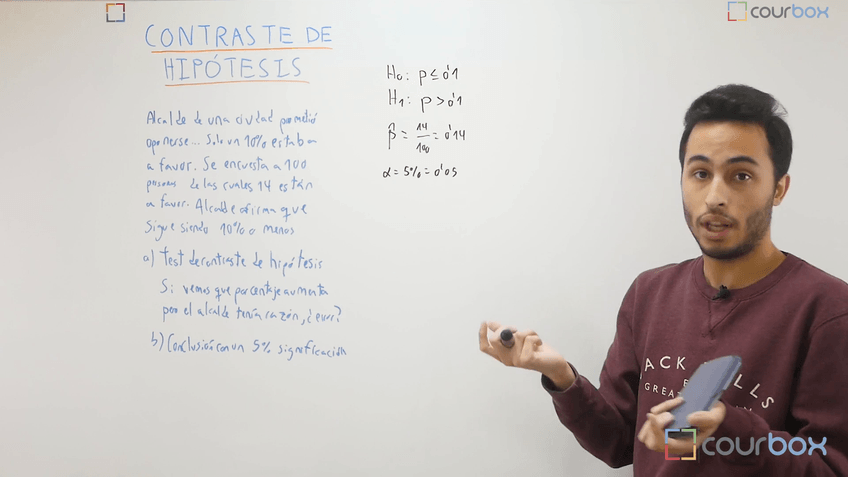 courbox
CONTRASTE DE
HIPÓTESIS
Alcalde de una ciudad prometió
oponerse... Solo un 10% estaban
a favor. Se encuesta a 100
personas de las cuales 14 están
a favor. Alcalde afirma que
Sigue siendo 10% o menos
a) Test de contraste de hipótesis
Si vemos que porcentaje aumenta
pero el alcalde tenía razón, ¿error?
b) Conclusión con un 5% significación
H₀: p ≤ 0'1
H₁: p > 0'1
p̂ = 14/100 = 0'14
α = 5% = 0'05
JACK
LLS
GREAT
courbox